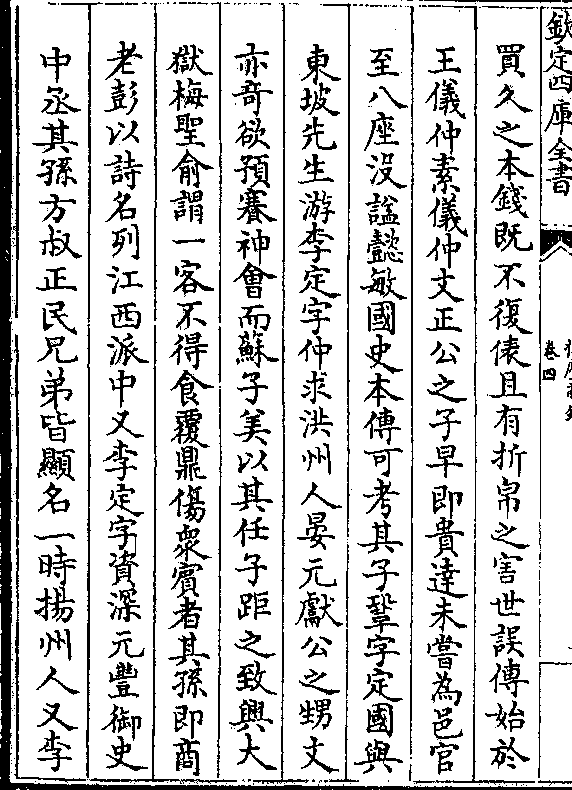 欽定四庫全書
卷四
買久之本錢既不復俵且有折帛之害世誤傳始於
王儀仲素儀仲文正公之子早即貴達未嘗為邑官
至八座沒諡懿敏國史本傳可考其子鞏字定國與
東坡先生游李定字仲求洪州人晏元獻公之甥文
亦奇欲預賽神會而蘇子美以其任子距之致興大
獄梅聖俞謂一客不得食覆鼎傷衆賓者其孫即商
老彭以詩名列江西派中又李定字資深元豐御史
中丞其孫方叔正民兄弟皆顯名一時揚州人又李